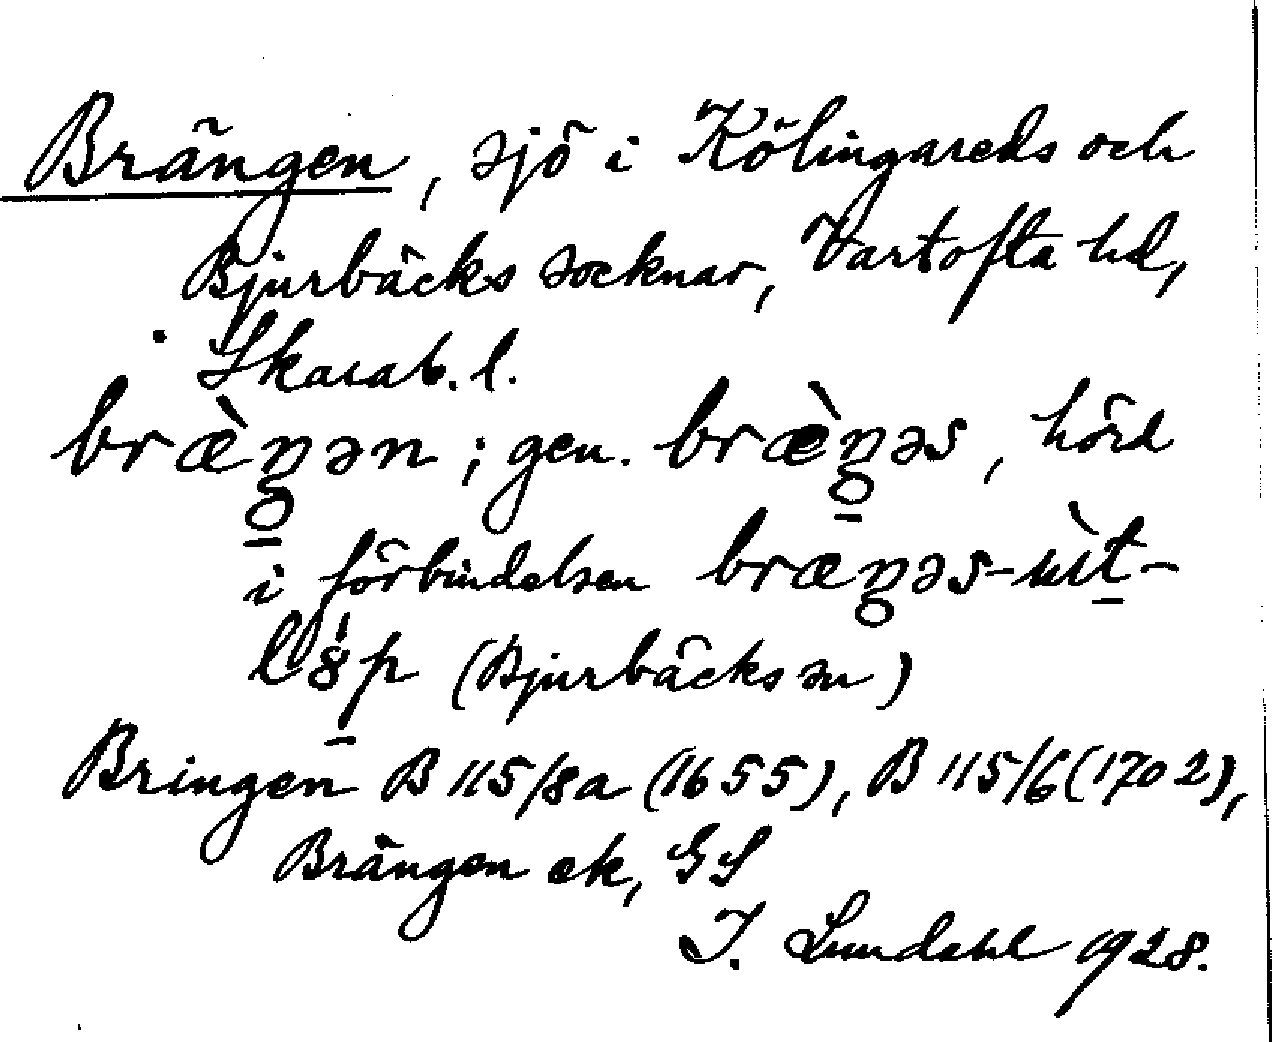 Brängen, sjö i Kölingareds och
Bjurbäcks socknar, Vartofta hd,
Skarab. l.
bræ̀ŋən; gen. bræ̀ŋəs, hörd
i förbindelsen bræŋəs-ùt-
l8̍p (Bjurbäcks sn)
Bringen B 115/8a (1655), B 115/6 (1702),
Brängen ek, GS
I. Lundahl 1928.